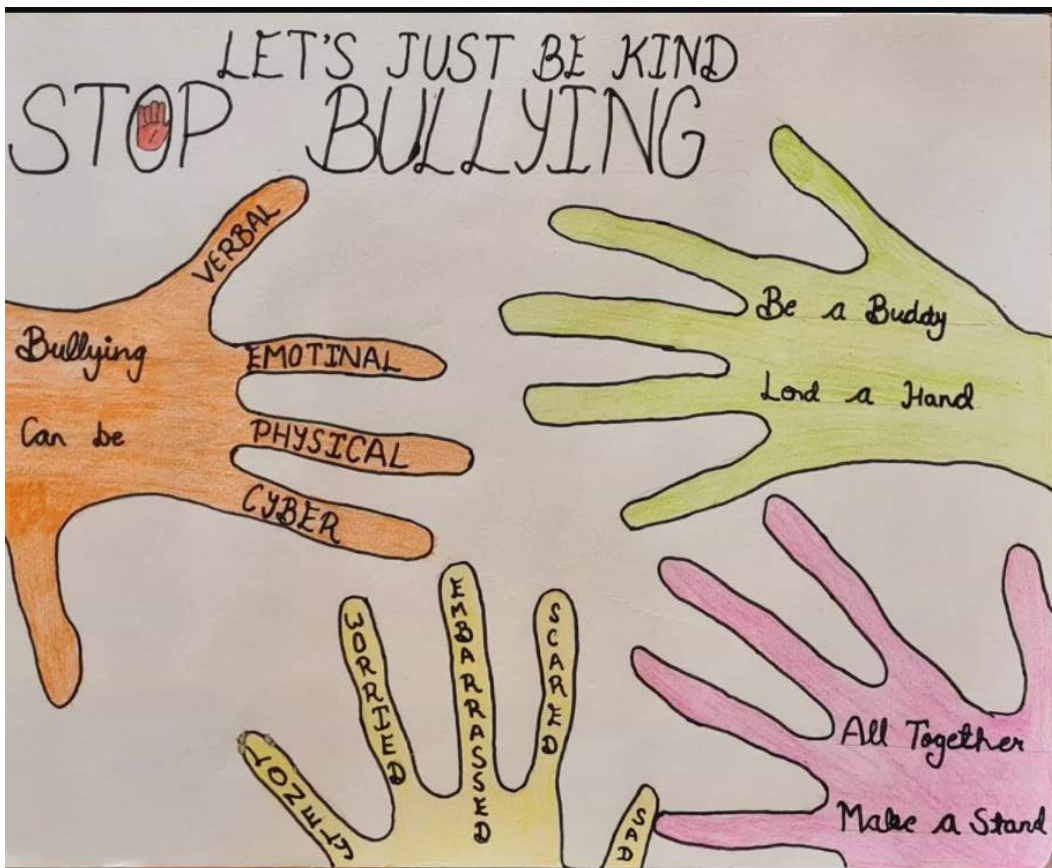 LET'S JUST BE KIND
STOP BULLYING
Bullying
Can be
VERBAL
EMOTINAL
PHYSICAL
CYBER
Be a Buddy
Lend a Hand
WORRIED
EMBARRASSED
SCARED
SAD
All Together
Make a Stand